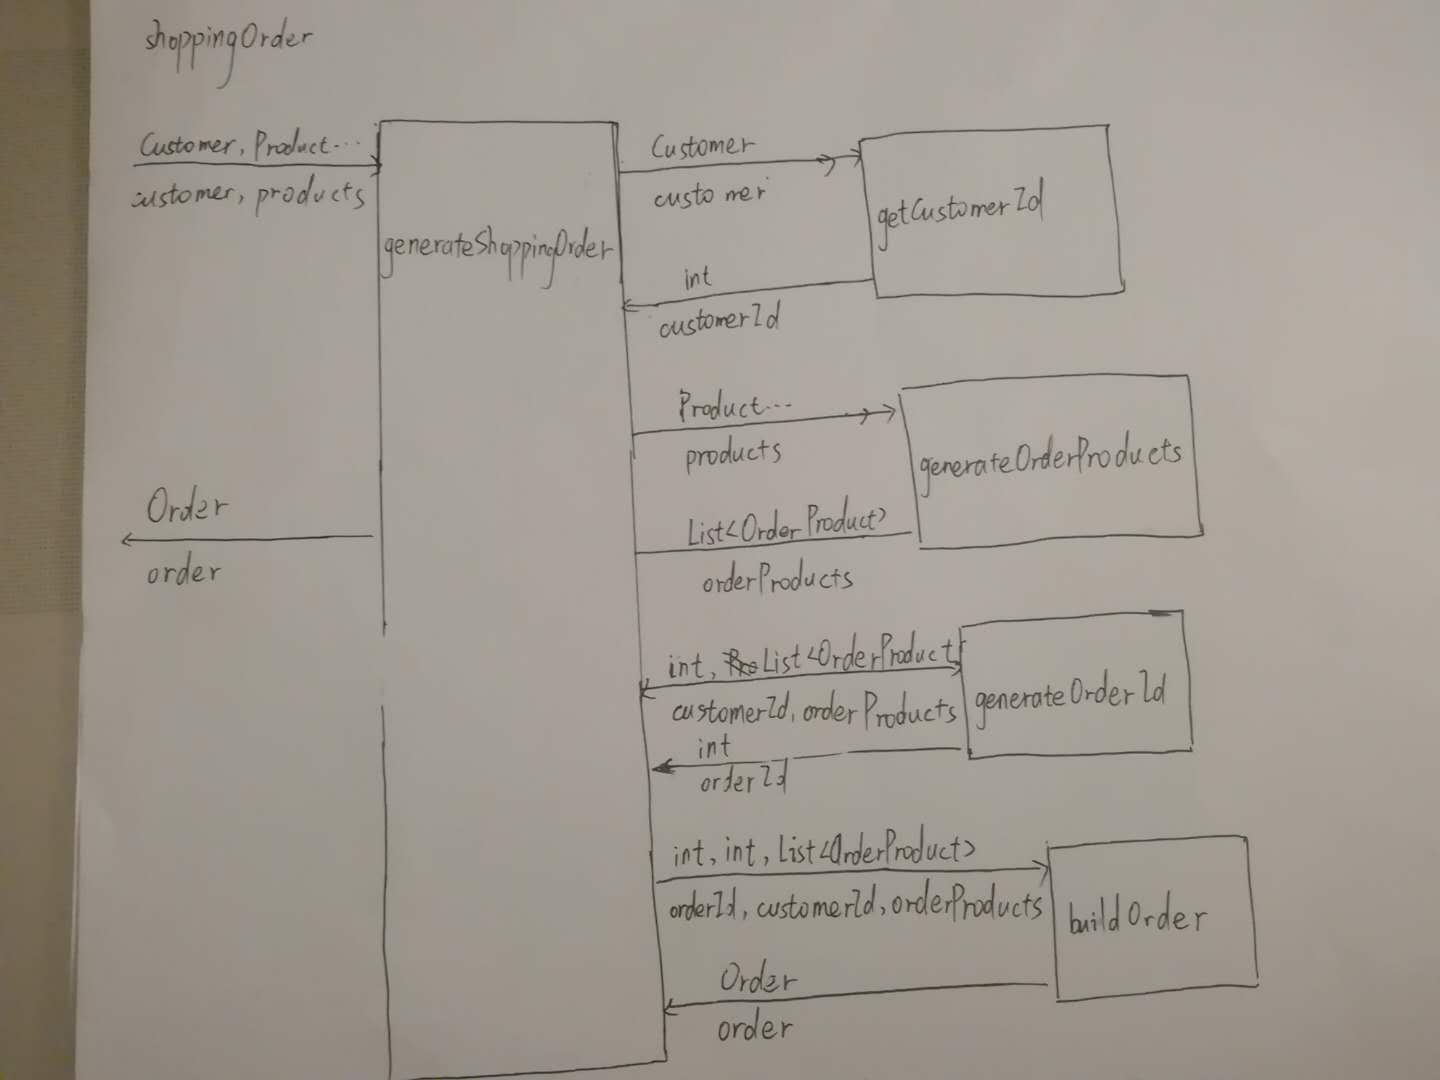 shoppingOrder
Customer, Product...
customer, products
generateShoppingOrder
Order
order
Customer
customer
getCustomerId
int
customerId
Product...
products
generateOrderProducts
List<OrderProduct>
orderProducts
int, List<OrderProduct
customerId, orderProducts
generateOrderId
int
orderId
int, int, List<OrderProduct>
orderId, customerId, orderProducts
buildOrder
Order
order